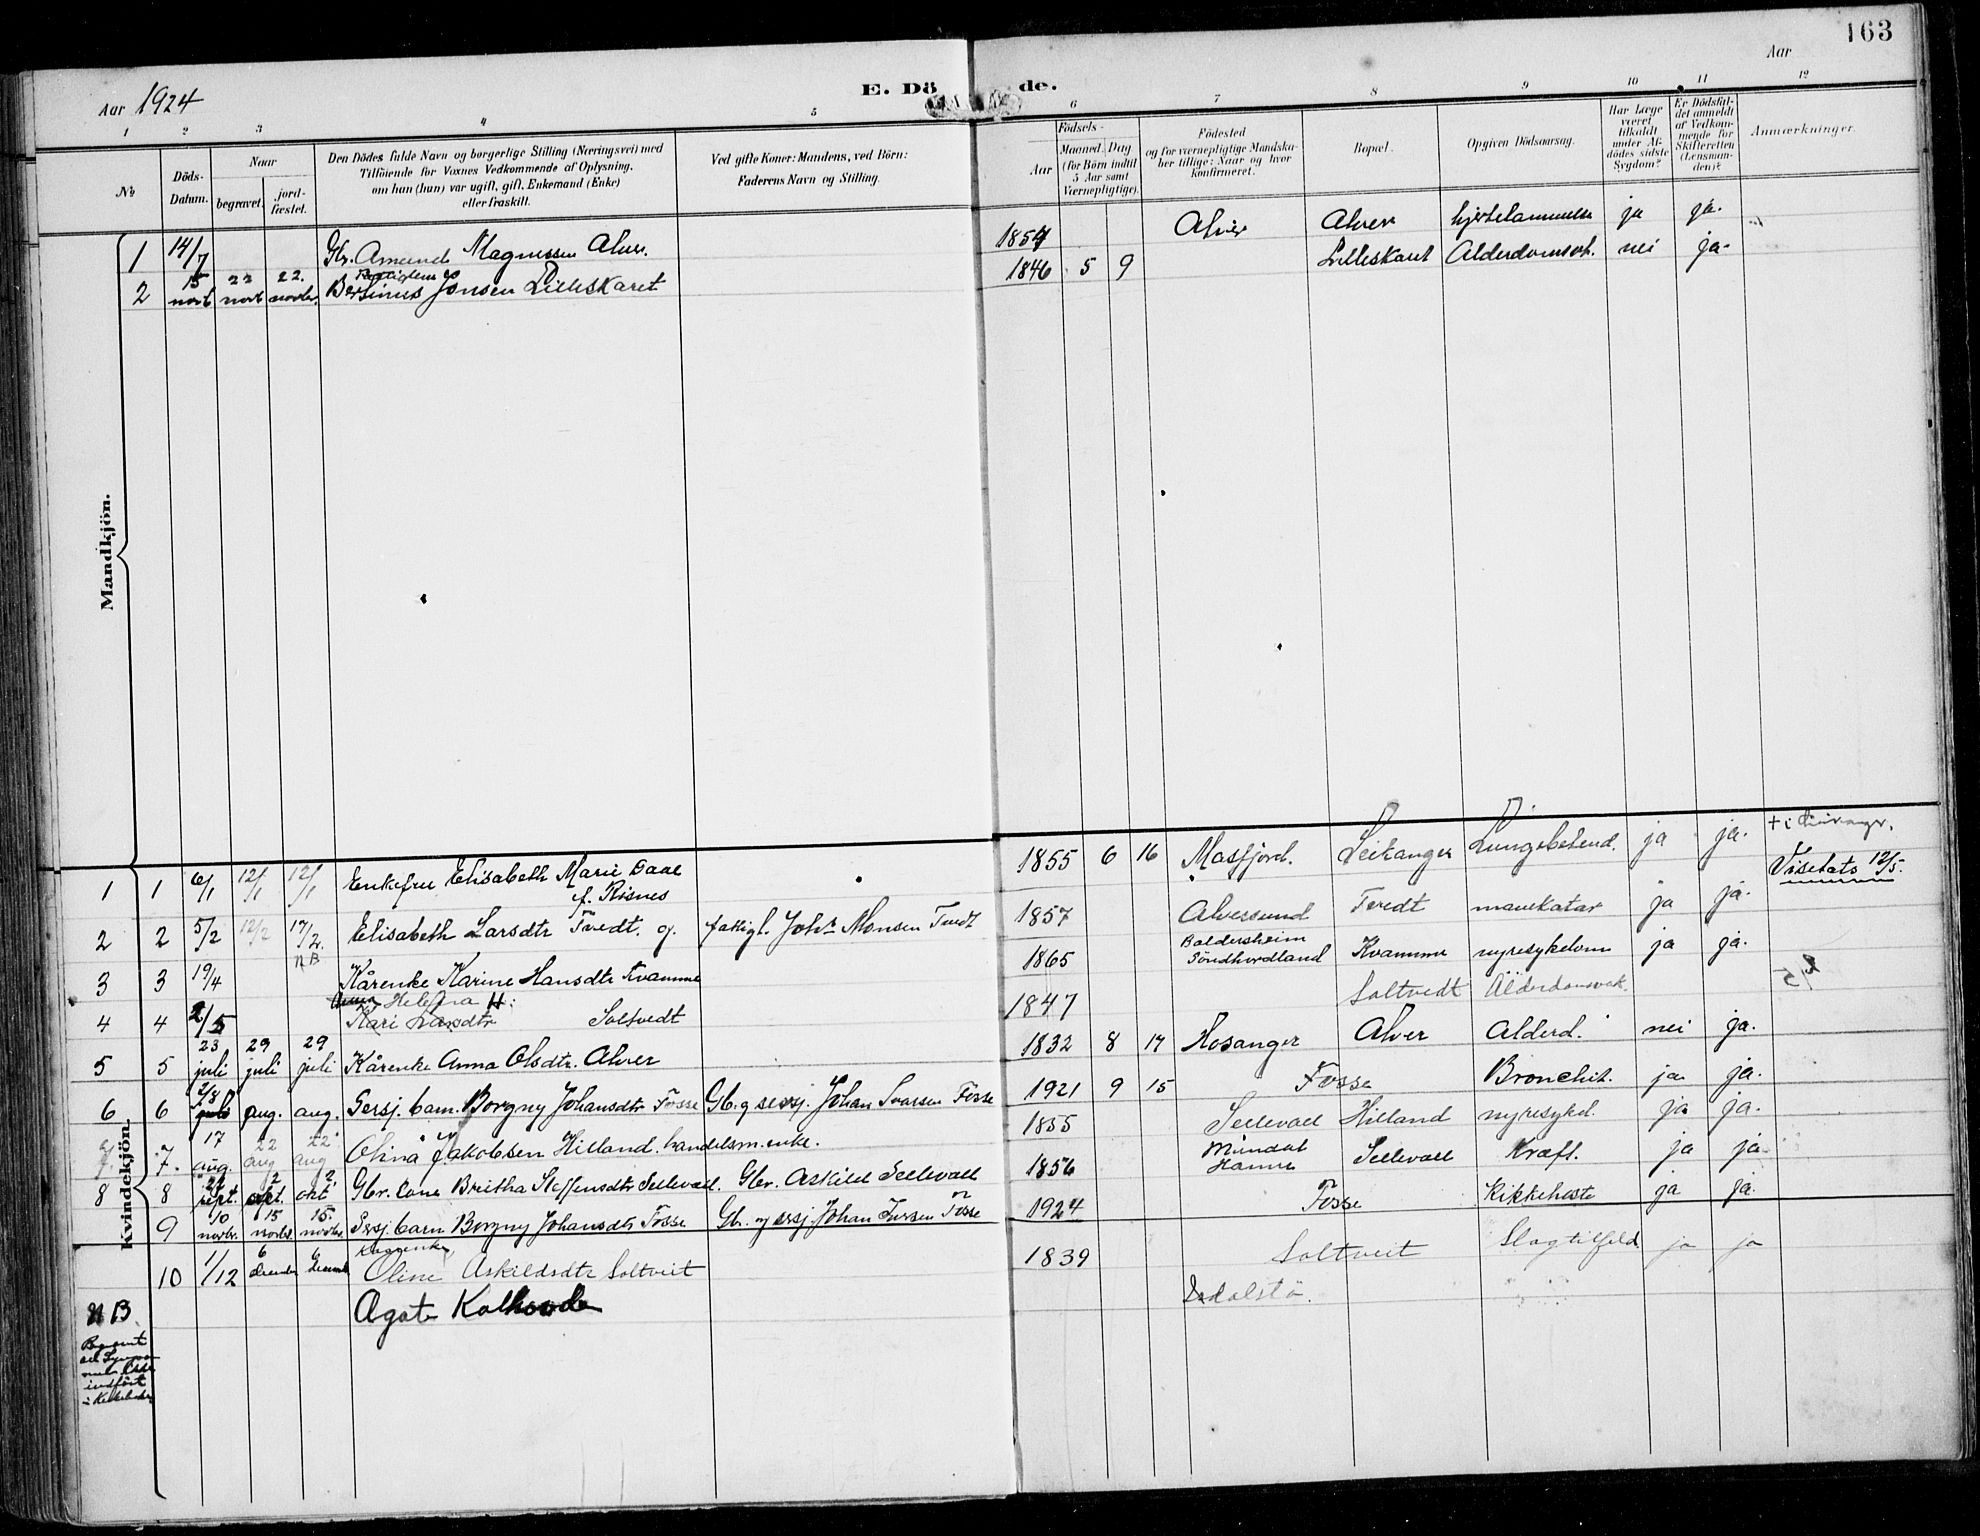 163
Aar 1924
E. Dö de.
Aar
1 2 3 4 5 6 7 8 9 10 11 12
No
Döds-Datum.
Naar
begravet.
jord-fæstet.
Den Dödes fulde Navn og borgerlige Stilling (Næringsvei) med
Tilföiende for Voxnes Vedkommende af Oplysning,
om han (hun) var ugift, gift, Enkemand (Enke)
eller fraskilt.
Ved gifte Koner: Mandens, ved Börn:
Faderens Navn og Stilling.
Födsels-
Aar
Maaned. Dag
(for Börn indtil
5 Aar samt
Værnepligtige).
Födested
og for værnepligtige Mandska-
ber tillige: Naar og hvor
konfirmeret.
Bopæl.
Opgiven Dödsaarsag.
Har Læge
været
tilkaldt
under Af-
dödes sidste
Sygdom?
Er Dödsfal-
det anmeldt
af Vedkom-
mende for
Skifteretten
(Lensman-
den)?
Anmærkninger.
Mandkjön.
1 14/7 Gbr. Amund Magnussen Alver. 1854 Alver Alver hjertelammelse ja ja.
2 15 novb 22 novb 22. novbr. Bersinus Jonsen Lilleskaret 1846 5 9 Lilleskaret Alderdomssv. nei ja.
Kvindekjön.
1 1 6/1 12/1 12/1 Enkefru Elisabeth Marie Daae f. Risnes 1855 6 16 Masfjord. Seitanger Lungebetend. ja ja.
Visetats 12/5.
2 2 5/2 12/2 17/2. Elisabeth Larsdtr Tvedt. g. fattigl. Johs Monsen Tvedt 1857 Alversund Tvedt mavekatar ja ja.
NB
3 3 19/4 Kårenke Karine Hansdtr Kvamme 1865 Baldersheim Söndhordland Kvamme nyresykdom ja ja.
4 4 2/5 Kari Larsdtr Soltvedt 1847 Soltvedt Älderdomsvak.
5 5 23 juli 29 juli 29 juli Kårenke Anna Olsdtr. Alver 1832 8 17 Hosanger Alver Alderd. nei ja.
6 6 2/8 aug. aug. Sersj. barn. Borgny Johansdtr Fosse Gb. g sersj. Johan Ivarsen Fosse 1921 9 15 Fosse Bronchit. ja ja.
7. 7. 17 aug. 22 aug 22 aug Olina Jakobsen Hilland. handelsm. enke. 1855 Sellevaal Hilland nyresykd. ja ja.
8 8 24 sept. 2 okt. 2. okt Gbr. kone Britha Steffensdtr Sellevaal. Gbr. Askild Sellevaal 1856 Mundal Hamre Sellevaal Kræft. ja ja
9 10 novbr. 15 novbr. 15. novbr. Sersj. barn Borgny Johansdtr Fosse Gb. og sersj Johan Iversen Fosse 1924 Fosse Kikkehoste ja ja.
10 1/12 6 december 6 Decemb Oline Askildsdtr Soltveit 1839 Soltveit Slagtilfeld ja ja
NB Agate Kolhovde
indfört